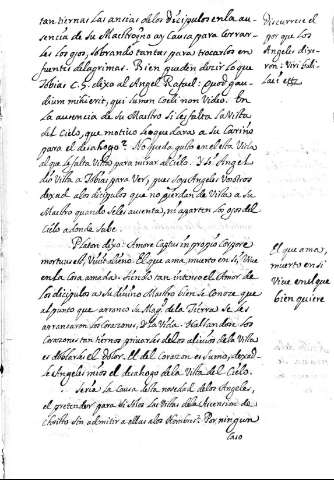 tan tiernas las ancias de los Dicipulos en la au-
sencia de su Maestro, no ay Causa para Cerrar-
las los ojos, sobrando tantas para trocarlos en
fuentes de lagrimas. Bien pueden decir lo que
Tobias C. 5. dixo al Angel Rafael: Quod gau-
dium mihi erit, qui lumen Coeli non video. En
la ausencia de su Maestro si les falta la Vista
del Cielo, que motivo le quedara a su Cariño
para el desahogo? No queda gusto en el esta Vida
al que le falta Vista para mirar al Cielo. Y si Angel
dio Vista a Tobias para Ver, pues sois Angeles Vosotros
dexad a los dicipulos que no pierdan de Vista a su
Maestro quando se les ausenta, ni aparten los ojos del
Cielo a donde sube.
Platon dixo: Amore Captus in proprio Corpore
mortuus est, Vivit alieno. El que ama, muerto en si, Vive
en la Cosa amada. Siendo tan intenso el Amor de
los dicipulos a su divino Maestro bien se Conoce que
al punto que arranco su Mag. de la Tierra se les
arrancaron los Corazones, y la Vida. Hallandose los
Corazones tan tiernos privados de los alivios de la Vista
es doblarles el dolor. El del Corazon es sumo, dexad-
le Angeles mios el desahogo de la Vista del Cielo.
Seria la Causa esta novedad de los Angeles,
el pretender para si solos las Vistas de la Ascension de
Christo sin admitir a ellas a los Hombres? Por ningun
Caso
Discurrese el
por que los
Angeles dixe-
ron: Viri Gali-
laei etz.
El que ama,
muerto en si
Vive en el que
bien quiere